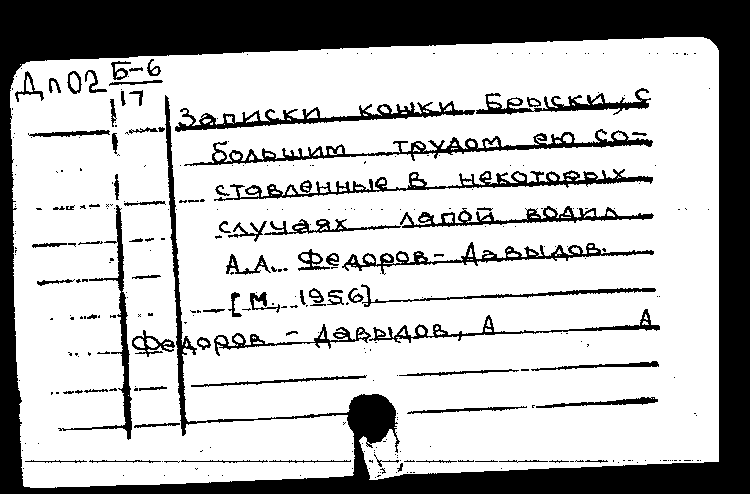 Дп02 Б-6
17
Записки кошки Брыски, с
большим трудом ею со-
ставленные в некоторых
случаях лапой водил
А.А. Федоров-Давыдов.
[М., 1956].
Федоров - Давыдов, А А